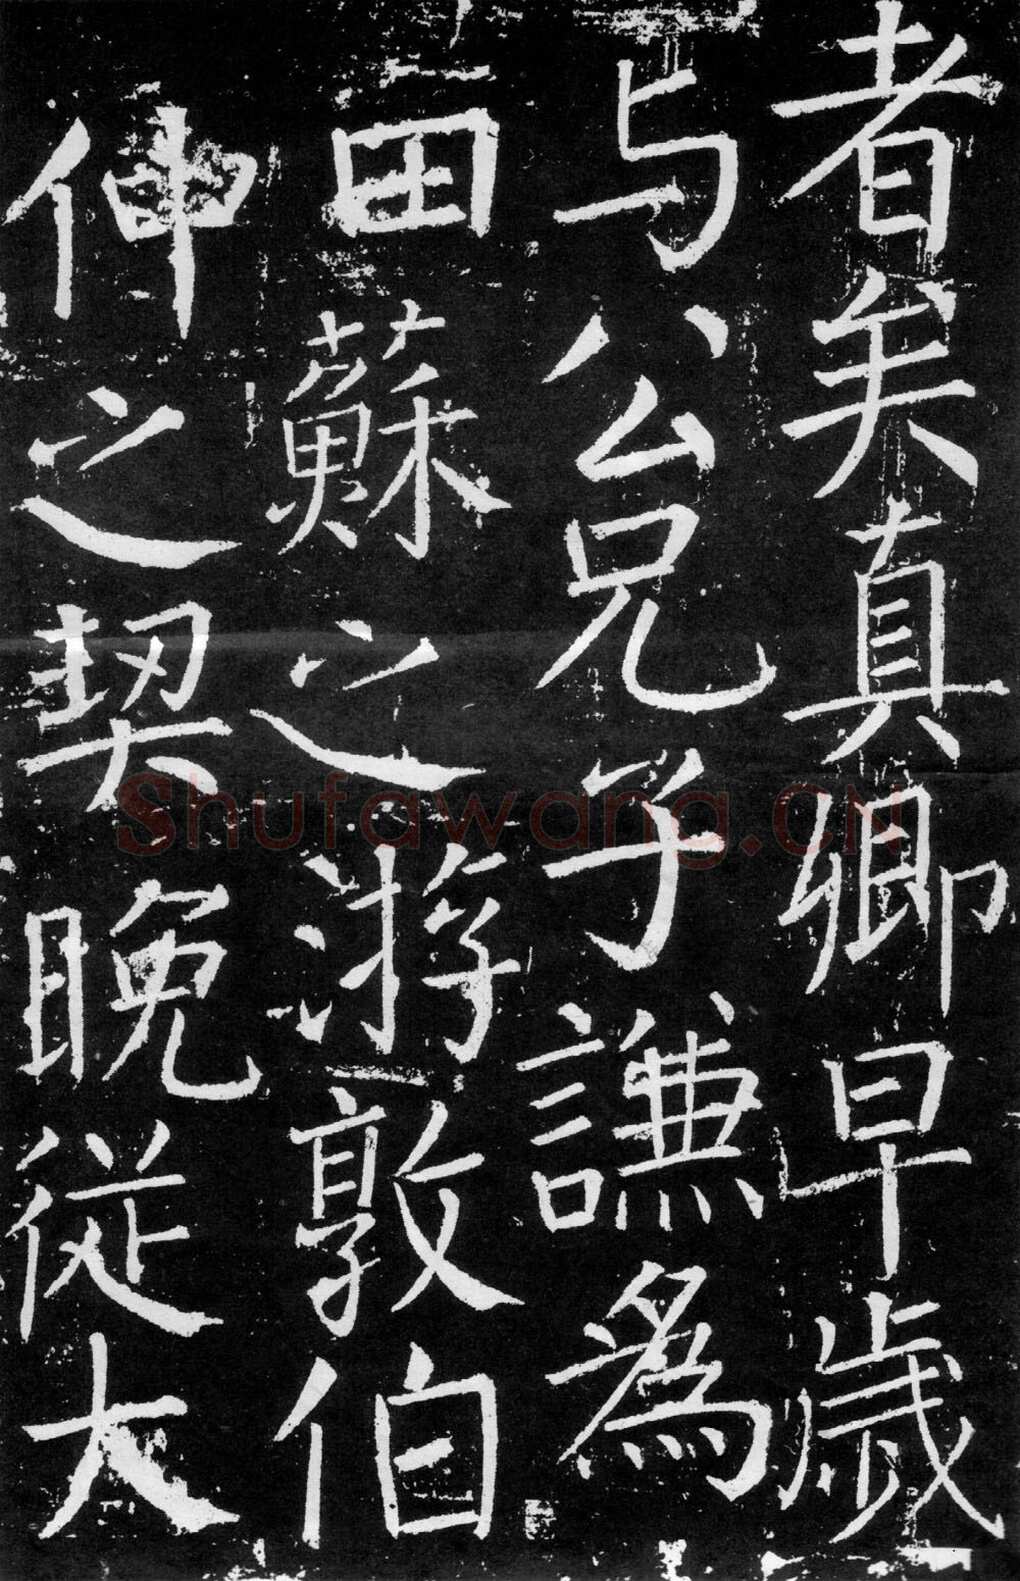 者矣真卿早歲
与公兄子謙為
田蘇之游敦伯
仲之契晚從大
Shufawang.CN